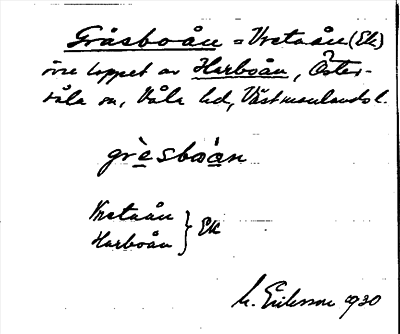 Gräsboån = Vretaån (Ek)
övre loppet av Harboån, Öster-
våla sn, Våla hd, Västmanlands l.
grèsbo̯àn
Vretaån } Ek
Harboån
M. Eriksson 1930